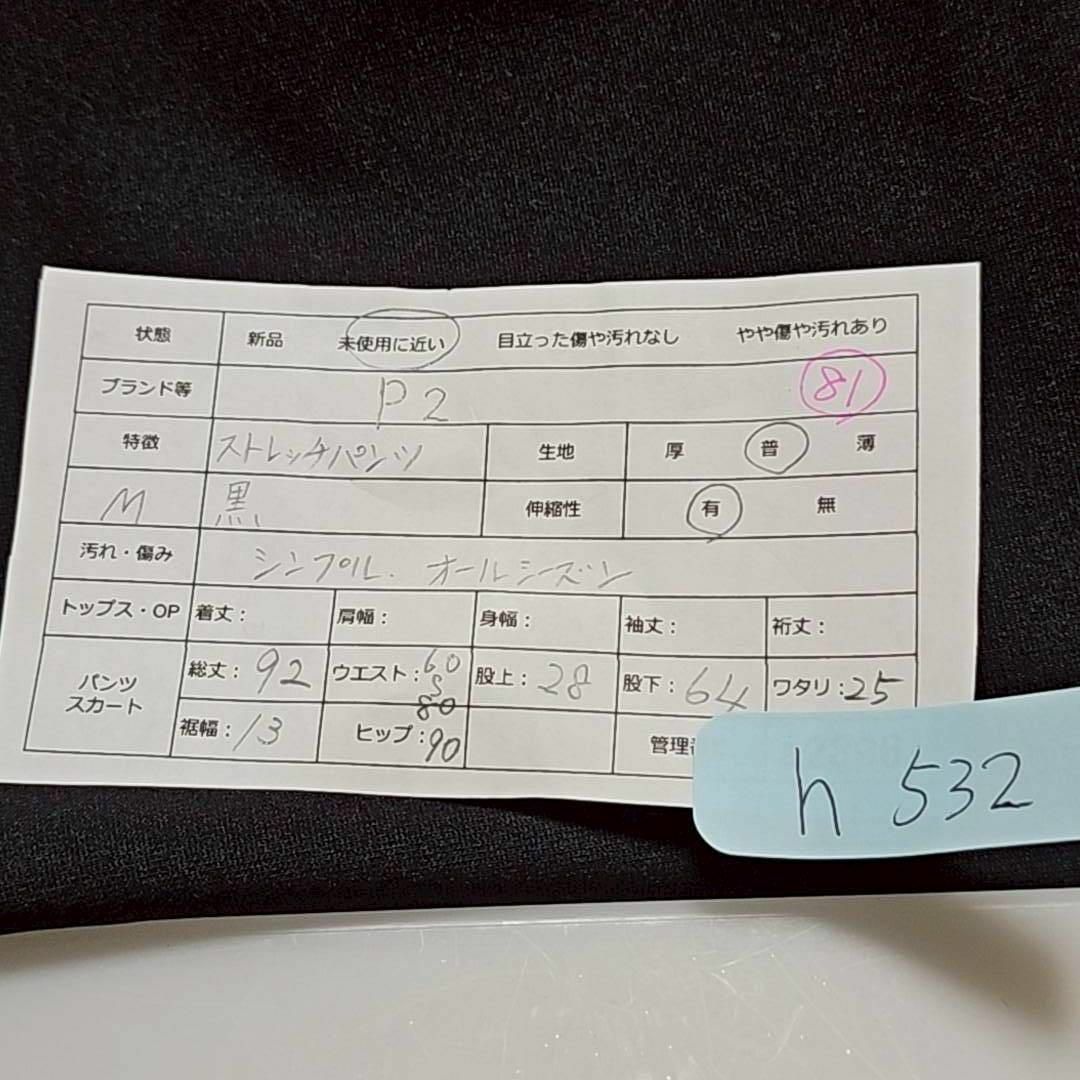 状態 新品 未使用に近い 目立った傷や汚れなし やや傷や汚れあり
ブランド等 P2 81
特徴 ストレッチパンツ 生地 厚 普 薄
M 黒 伸縮性 有 無
汚れ・傷み シンプル. オールシーズン
トップス・OP 着丈: 肩幅: 身幅: 袖丈: 裄丈:
パンツ スカート 総丈: 92 ウエスト: 60 S 80 股上: 28 股下: 64 ワタリ: 25
裾幅: 13 ヒップ: 90 管理
h 532